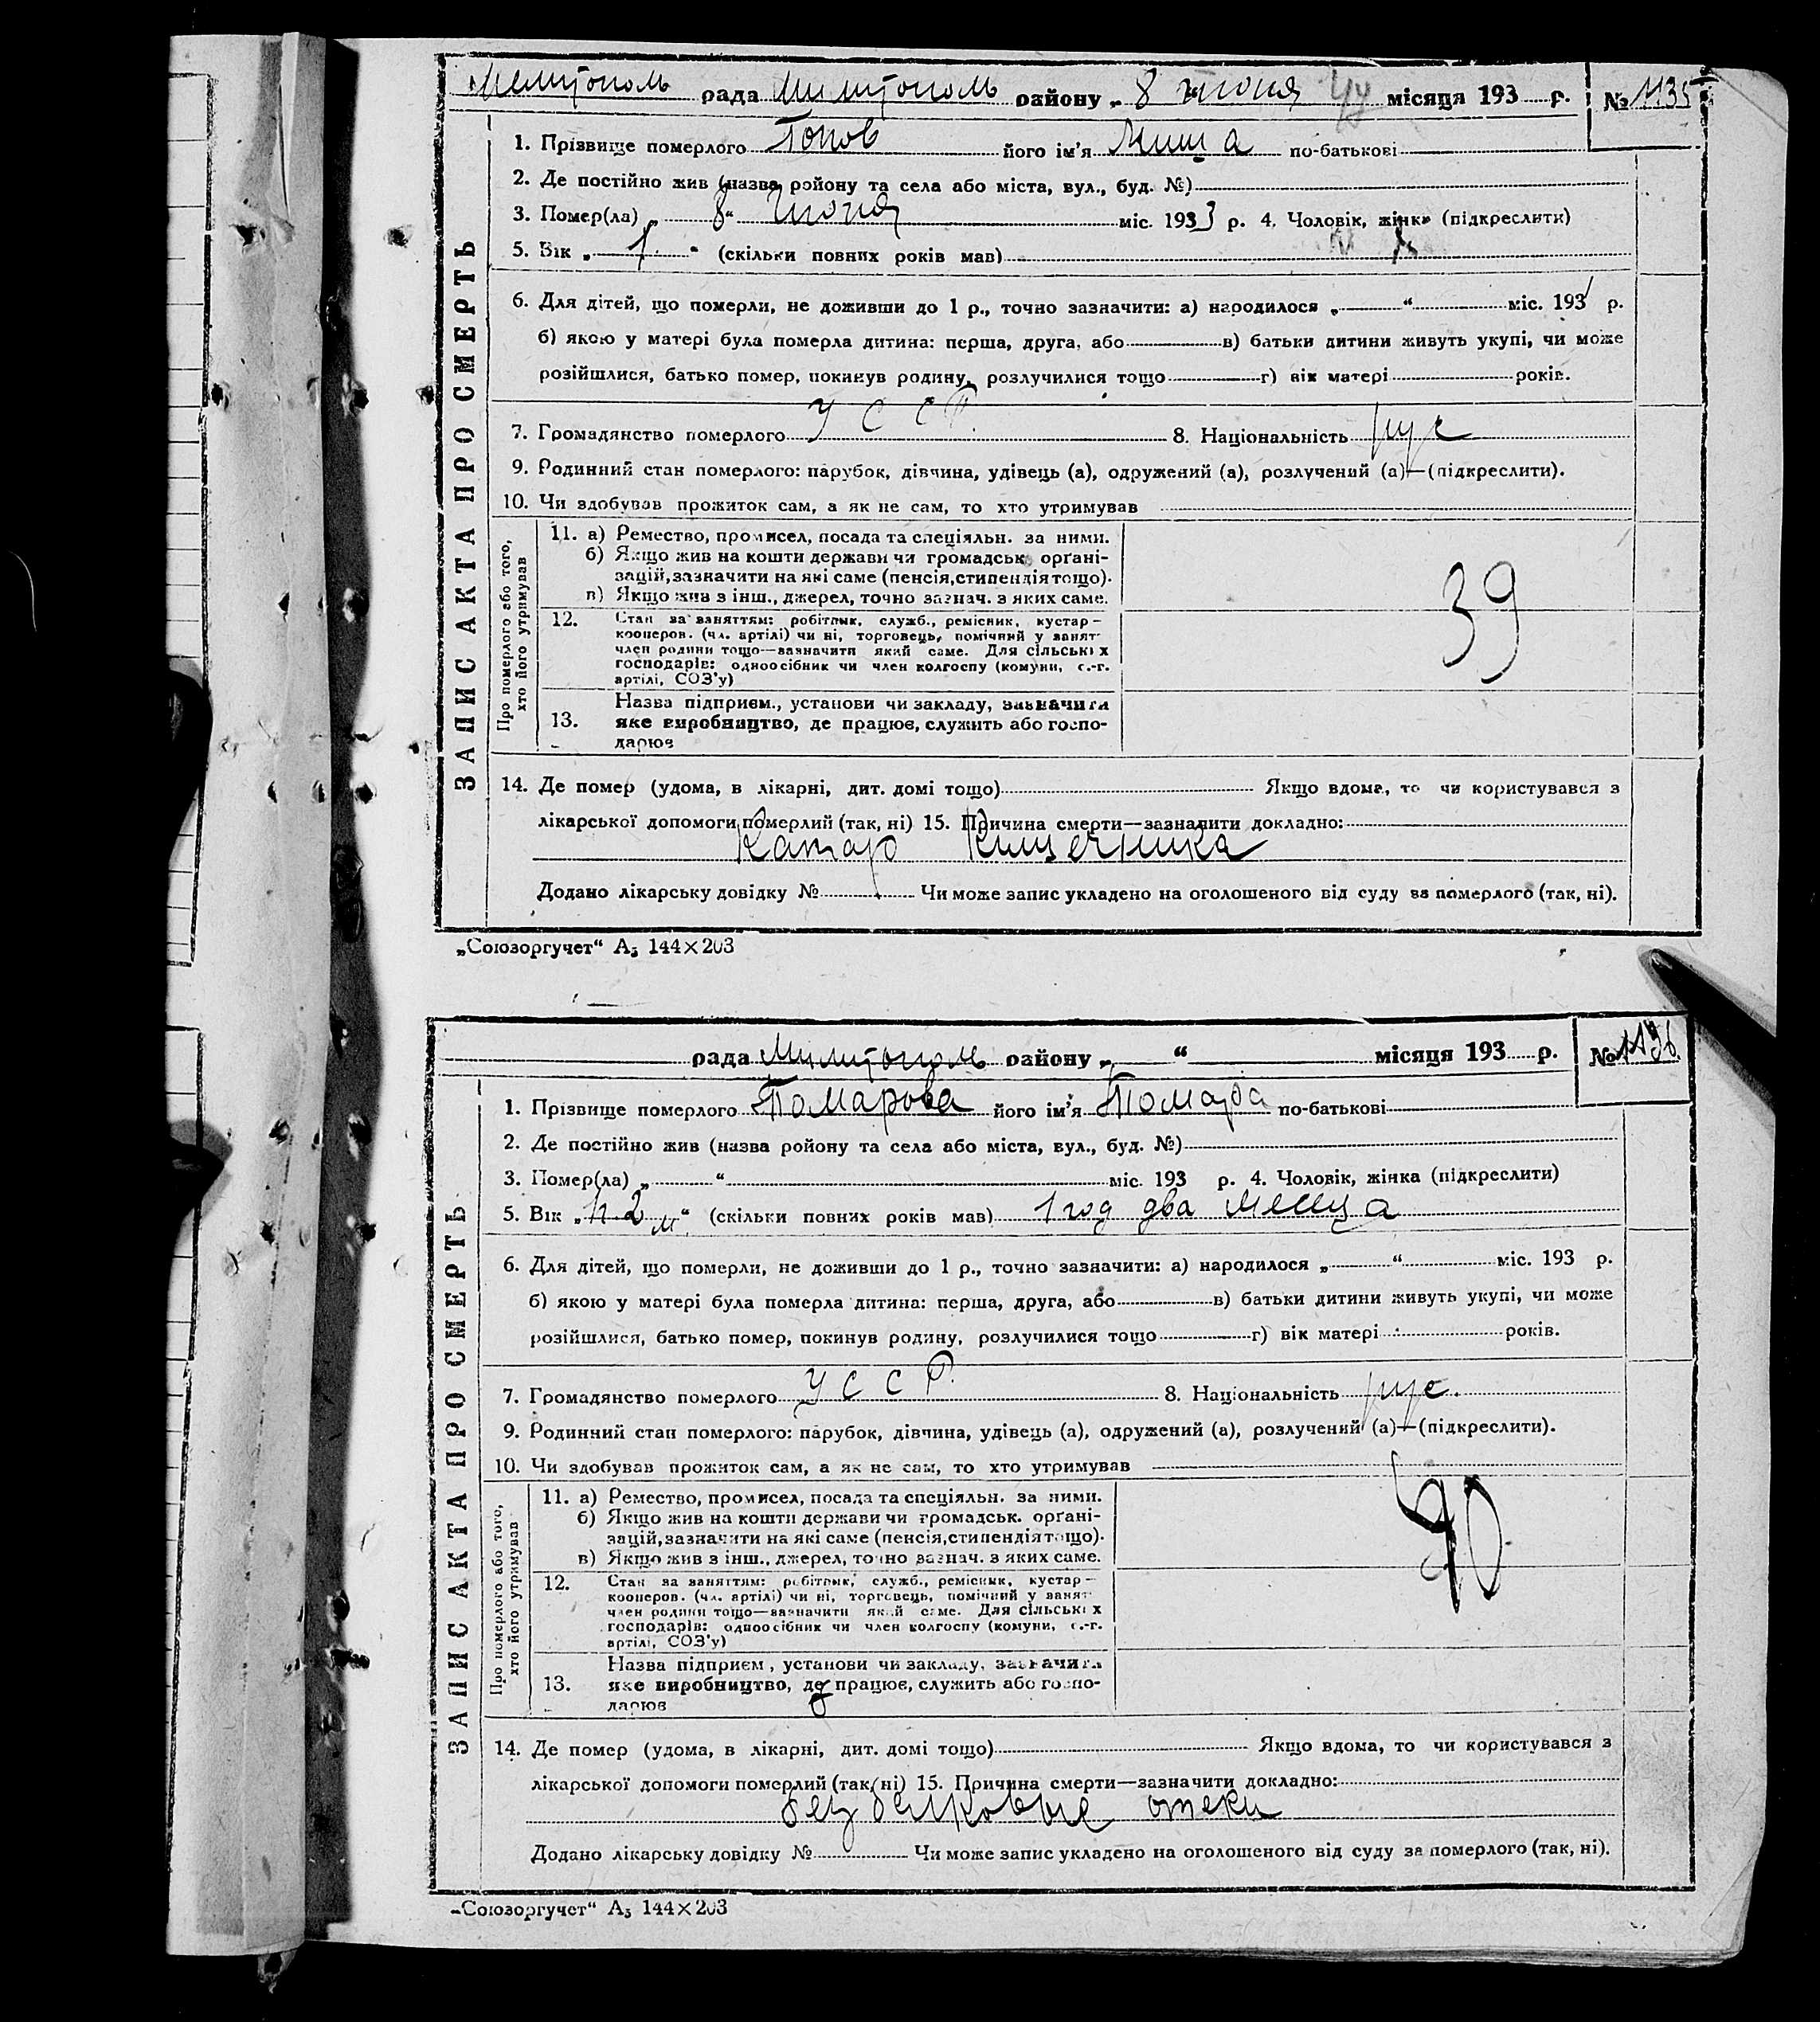 Мелитополь рада Милитополь району „ 8 июня місяця 193 р. № 1135
1. Прізвище померлого Попов його ім'я Миша по-батькові
2. Де постійно жив (назва ройону та села або міста, вул., буд. №)
3. Помер(ла) „ 8 “ Июня міс. 1933 р. 4. Чоловік, жінка (підкреслити)
5. Вік „ 1 “ (скільки повних років мав)
6. Для дітей, що померли, не доживши до 1 р., точно зазначити: а) народилося „ “ міс. 193 р.
б) якою у матері була померла дитина: перша, друга, або в) батьки дитини живуть укупі, чи може
розійшлися, батько помер, покинув родину, розлучилися тощо г) вік матері років.
7. Громадянство померлого УССР. 8. Національність рус
9. Родинний стан померлого: парубок, дівчина, удівець (а), одружений (а), розлучений (а)—(підкреслити).
10. Чи здобував прожиток сам, а як не сам, то хто утримував
Про померлого або того,
хто його утримував
11. а) Ремество, промисел, посада та спеціяльн. за ними.
б) Якщо жив на кошти держави чи громадськ. орґані-
зацій, зазначити на які саме (пенсія, стипендія тощо).
в) Якщо жив з інш., джерел, точно зазнач. з яких саме.
39
12. Стан за заняттям: робітник, служб., ремісник, кустар—
кооперов. (чл. артілі) чи ні, торговець, помічний у занят-
член родини тощо—зазначити який саме. Для сільських
господарів: одноосібник чи член колгоспу (комуни, с.-г.
артілі, СОЗ'у)
13. Назва підприєм., установи чи закладу, зазначити
яке виробництво, де працює, служить або госпо-
дарює
14. Де помер (удома, в лікарні, дит. домі тощо) Якщо вдома, то чи користувався з
лікарської допомоги померлий (так, ні) 15. Причина смерти—зазначити докладно:
Катар Кишечника
Додано лікарську довідку № Чи може запис укладено на оголошеного від суду за померлого (так, ні).
ЗАПИС АКТА ПРО СМЕРТЬ
„Союзоргучет“ А5 144×203
рада Милитополь району „ “ місяця 193 р. № 1136.
1. Прізвище померлого Помарова його ім'я по-батькові
2. Де постійно жив (назва ройону та села або міста, вул., буд. №)
3. Помер(ла) „ “ міс. 193 р. 4. Чоловік, жінка (підкреслити)
5. Вік „ “ (скільки повних років мав) 1 год два месяца
6. Для дітей, що померли, не доживши до 1 р., точно зазначити: а) народилося „ “ міс. 193 р.
б) якою у матері була померла дитина: перша, друга, або в) батьки дитини живуть укупі, чи може
розійшлися, батько помер, покинув родину, розлучилися тощо г) вік матері років.
7. Громадянство померлого УССР. 8. Національність рус.
9. Родинний стан померлого: парубок, дівчина, удівець (а), одружений (а), розлучений (а)—(підкреслити).
10. Чи здобував прожиток сам, а як не сам, то хто утримував
Про померлого або того,
хто його утримував
11. а) Ремество, промисел, посада та спеціяльн. за ними.
б) Якщо жив на кошти держави чи громадськ. орґані-
зацій, зазначити на які саме (пенсія, стипендія тощо).
в) Якщо жив з інш., джерел, точно зазнач. з яких саме.
12. Стан за заняттям: робітник, служб., ремісник, кустар—
кооперов. (чл. артілі) чи ні, торговець, помічний у занят-
член родини тощо—зазначити який саме. Для сільських
господарів: одноосібник чи член колгоспу (комуни, с.-г.
артілі, СОЗ'у)
13. Назва підприєм., установи чи закладу, зазначити
яке виробництво, де працює, служить або госпо-
дарює
14. Де помер (удома, в лікарні, дит. домі тощо) Якщо вдома, то чи користувався з
лікарської допомоги померлий (так, ні) 15. Причина смерти—зазначити докладно:
безбелковые отеки
Додано лікарську довідку № Чи може запис укладено на оголошеного від суду за померлого (так, ні).
ЗАПИС АКТА ПРО СМЕРТЬ
„Союзоргучет“ А5 144×203